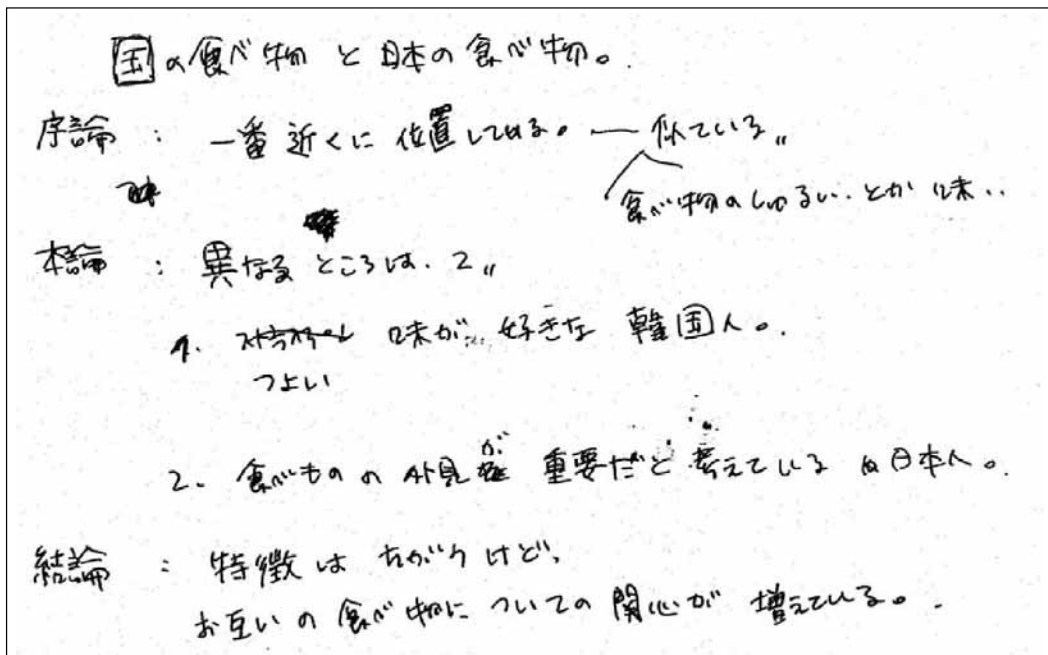 国の食べ物と日本の食べ物。
序論 : 一番近くに位置している。― 似ている〃
食べ物のしゅるい..とか味..
本論 : 異なるところは. 2〃
1. 味が.. 好きな 韓国人。
つよい
2. 食べものの外見が 重要だと考えている 日本人。
結論 : 特徴はちがうけど、
お互いの食べ物についての関心が 増えている。